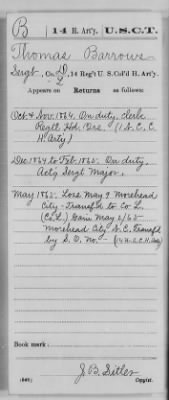 B | 14 H. Art'y. | U.S.C.T.
Thomas Barrows
Sergt., Co. D/L, 14 Reg't U.S. Col'd H. Art'y.
Appears on
Returns
as follows:
Oct & Nov. 1864. On duty, clerk
Regtl Hd. Qrs. (1 N.C.C.
H. Arty)
Dec 1864 to Feb 1865. On duty,
Actg Sergt Major.
May 1865. Loss May 9 Morehead
City - Transf'd to Co L.
(Co. L.) Gain May 2/65
Morehead City N.C. transfd
by S.O. No. - (14 H.A.)
Book mark:
J.B. Sitler
(546) Copyist.